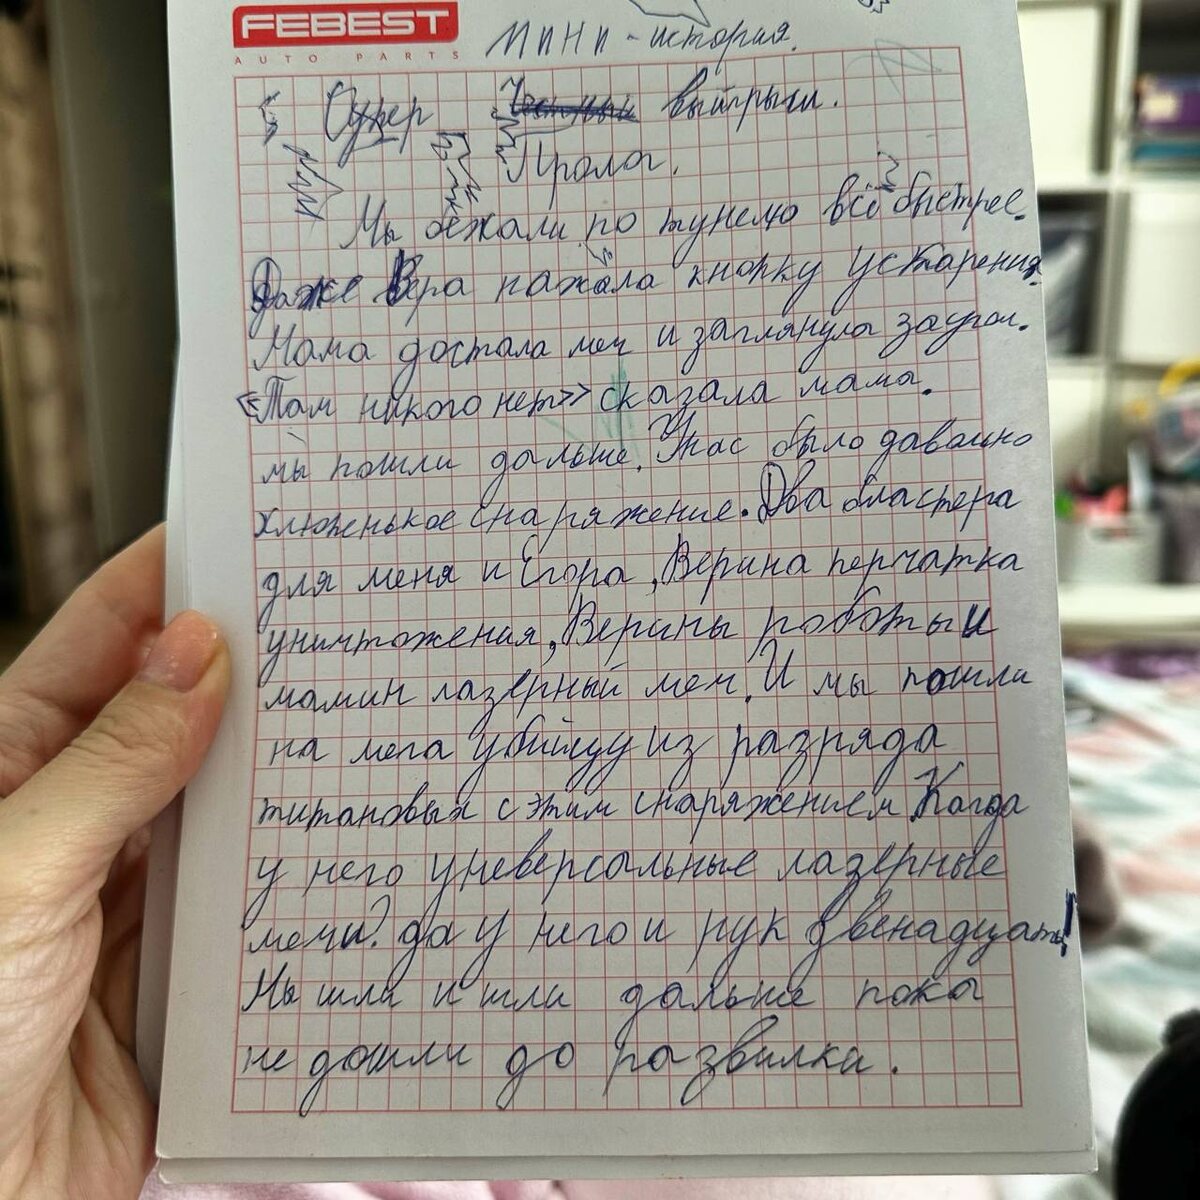 FEBEST
AUTO PARTS
мини-история.
Супер выйгрыш.
Пролог.
Мы бежали по тунелю всё быстрее.
Даже Вера нажала кнопку ускарения.
Мама достала меч и заглянула заугол.
«Там никого нет» сказала мама.
мы пошли дальше. Унас было давольно
хлюженькое снаряжение. Два бластера
для меня и Егора, Верина перчатка
уничтожения, Верины роботы и
мамин лазерный меч. И мы пошли
на мега убийцу из разряда
титановых с этим снаряжением. Кагда
у него уневерсальные лазерные
мечи? да у него и рук двенадцать!
Мы шли и шли дальше пока
не дошли до развилки.